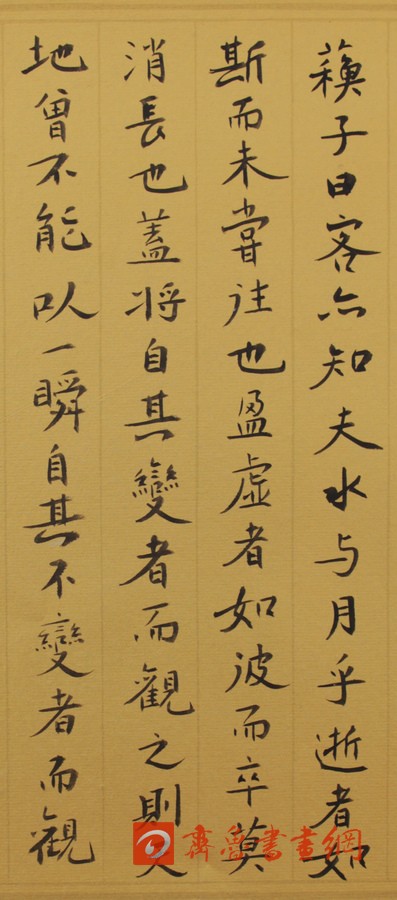 蘓子曰客亦知夫水与月乎逝者如
斯而未嘗往也盈虛者如彼而卒莫
消長也蓋将自其變者而觀之則天
地曾不能以一瞬自其不變者而觀
齊魯書畫網